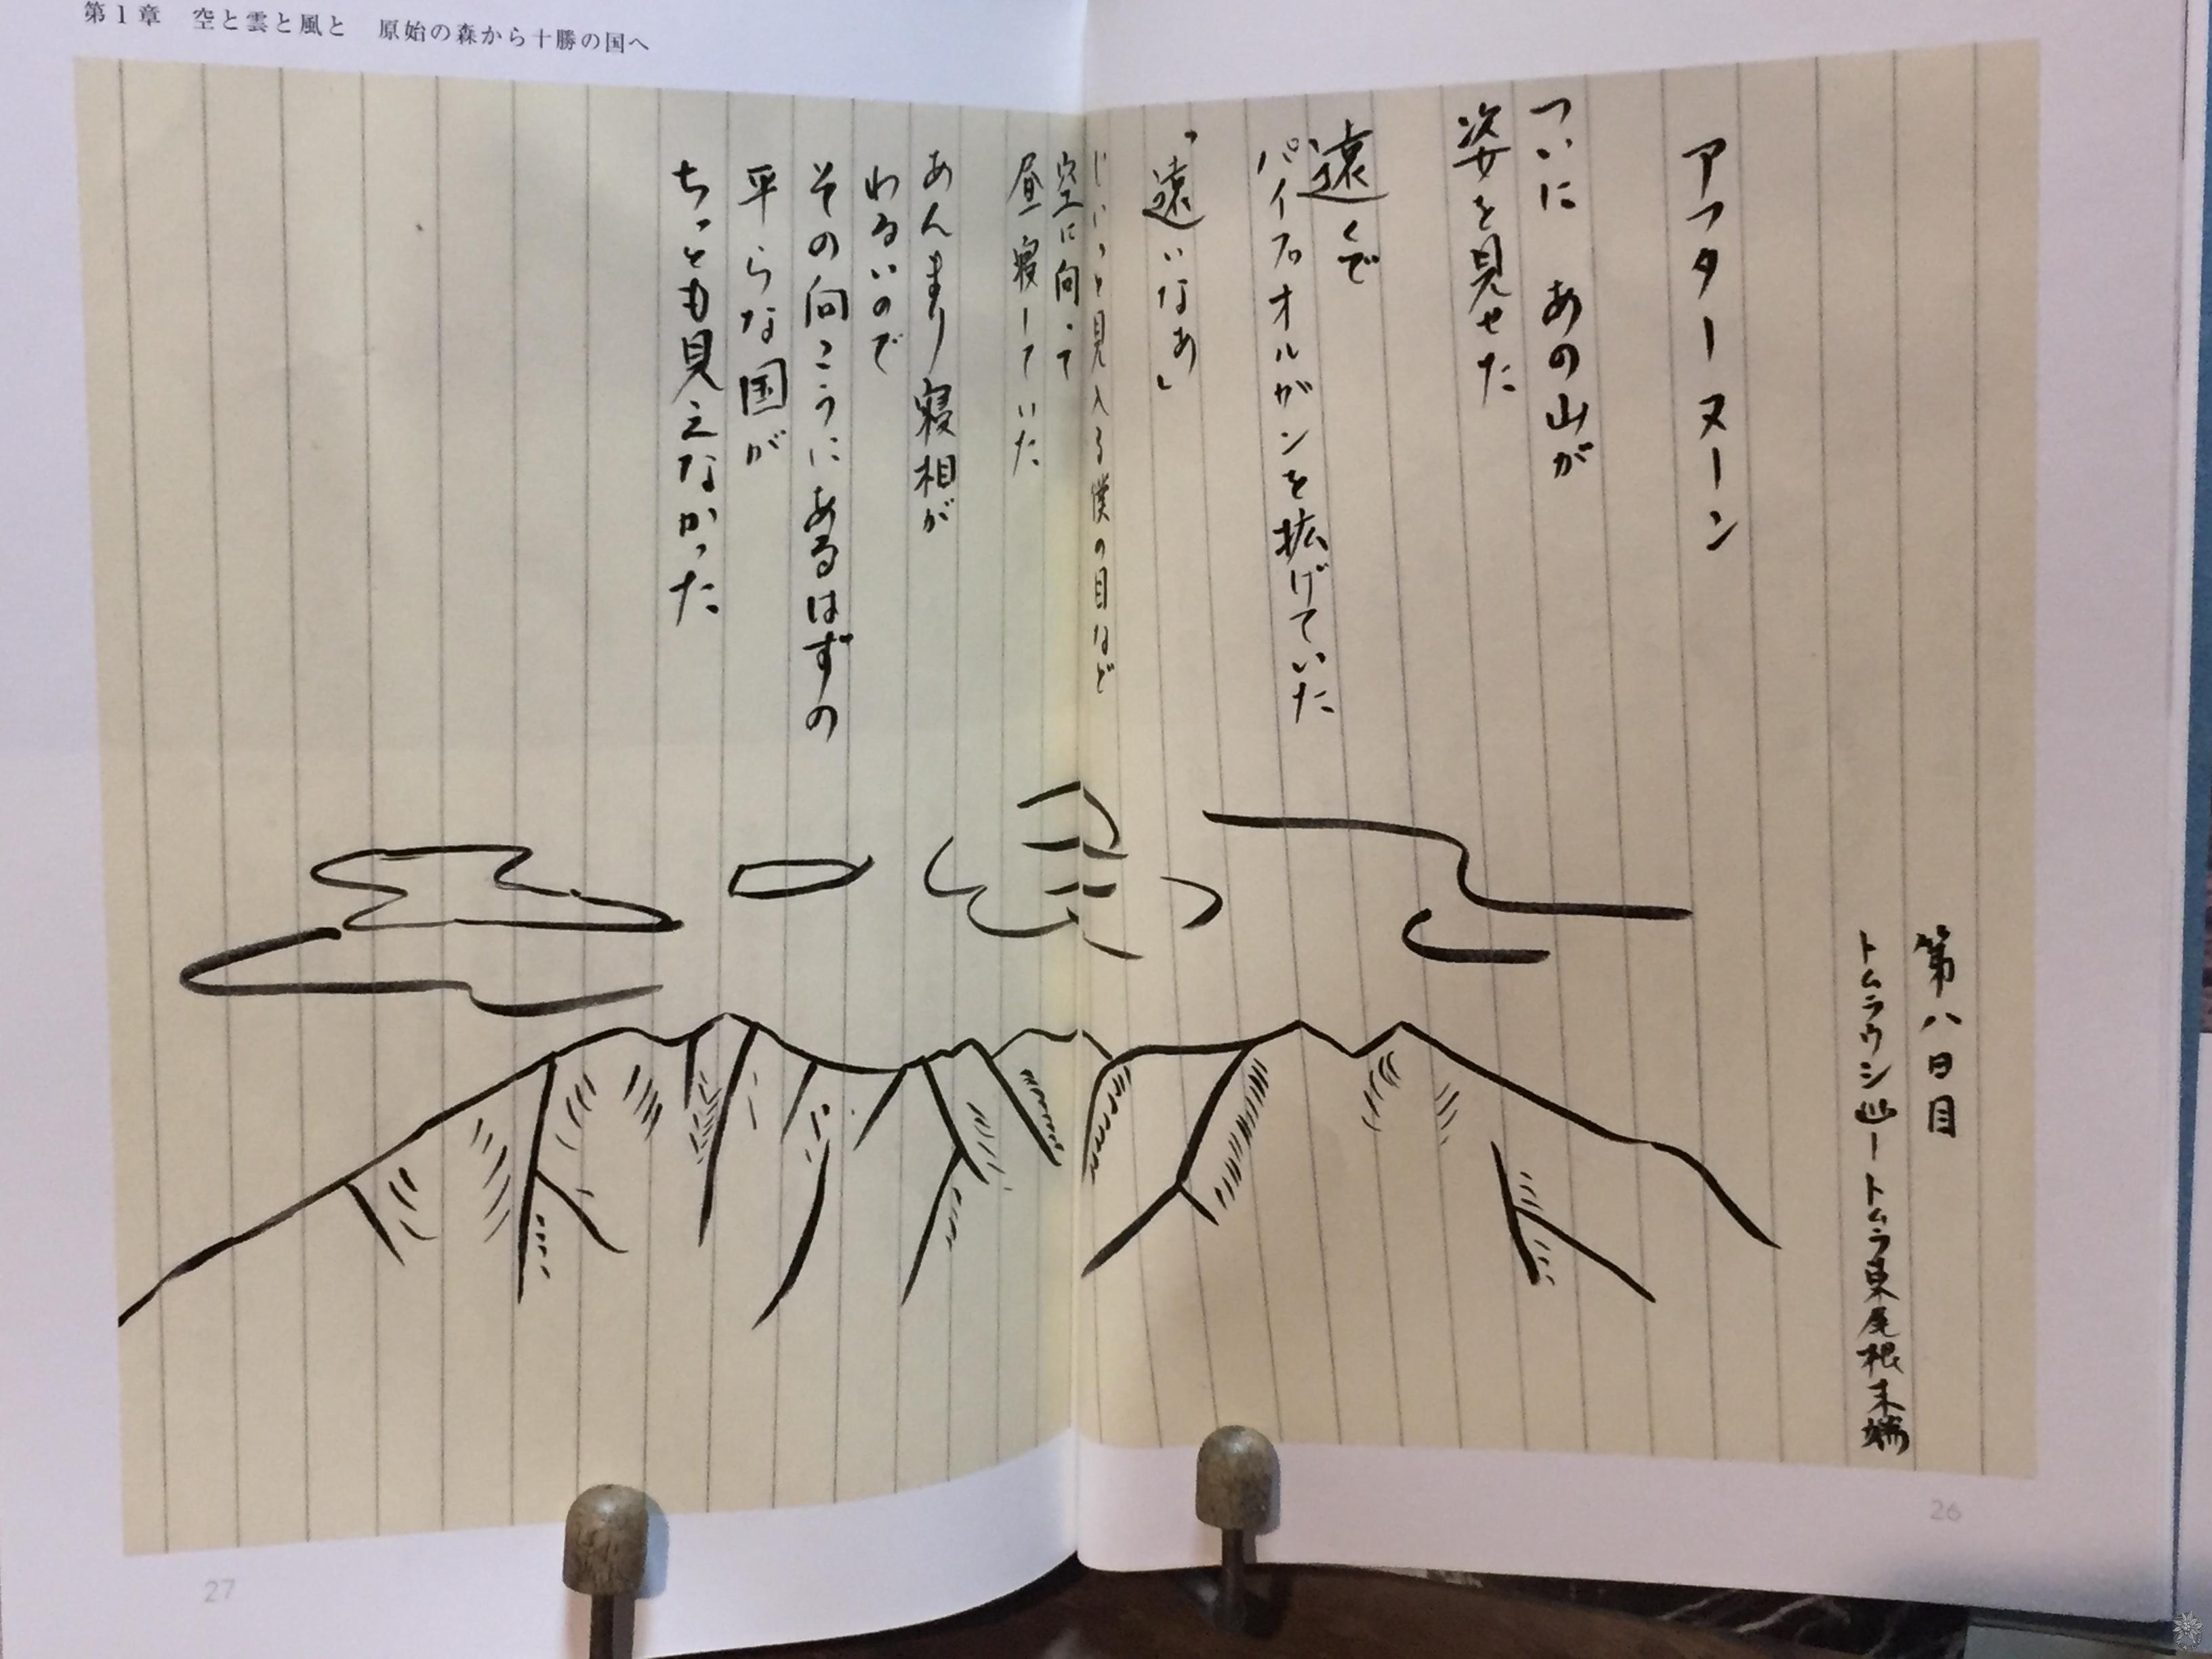 第1章　空と雲と風と　原始の森から十勝の国へ
第八日目
トムラウシ山ートムラ東尾根末端
アフターヌーン
ついに　あの山が
姿を見せた
遠くで
パイプオルガンを拡げていた
「遠いなあ」
じいっと見入る僕の目など
空に向って
昼寝していた
あんまり寝相が
わるいので
その向こうにあるはずの
平らな国が
ちっとも見えなかった
26
27